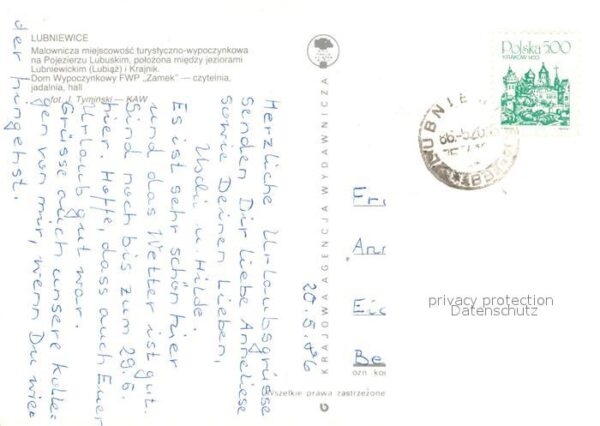 LUBNIEWICE
Malownicza miejscowość turystyczno-wypoczynkowa
na Pojezierzu Lubuskim, położona między jeziorami
Lubniewickim (Lubiąż) i Krajnik.
Dom Wypoczynkowy FWP „Zamek” — czytelnia,
jadalnia, hall
fot. J. Tymiński — KAW
Herzliche Urlaubsgrüsse
senden Dir liebe Anneliese
sowie Deinen Lieben,
Uschi u. Hilde.
Es ist sehr schön hier
und das Wetter ist gut.
Sind noch bis zum 29.6.
hier. Hoffe, dass auch Euer
Urlaub gut war.
Grüsse auch unsere Kolle-
gen von mir, wenn Du wie
der hingehst.
20.5.86
KRAJOWA AGENCJA WYDAWNICZA
Polska 500
KRAKÓW 1493
LUBNIE
Fr
An
Ei
Be
Wszelkie prawa zastrzeżone
privacy protection
Datenschutz